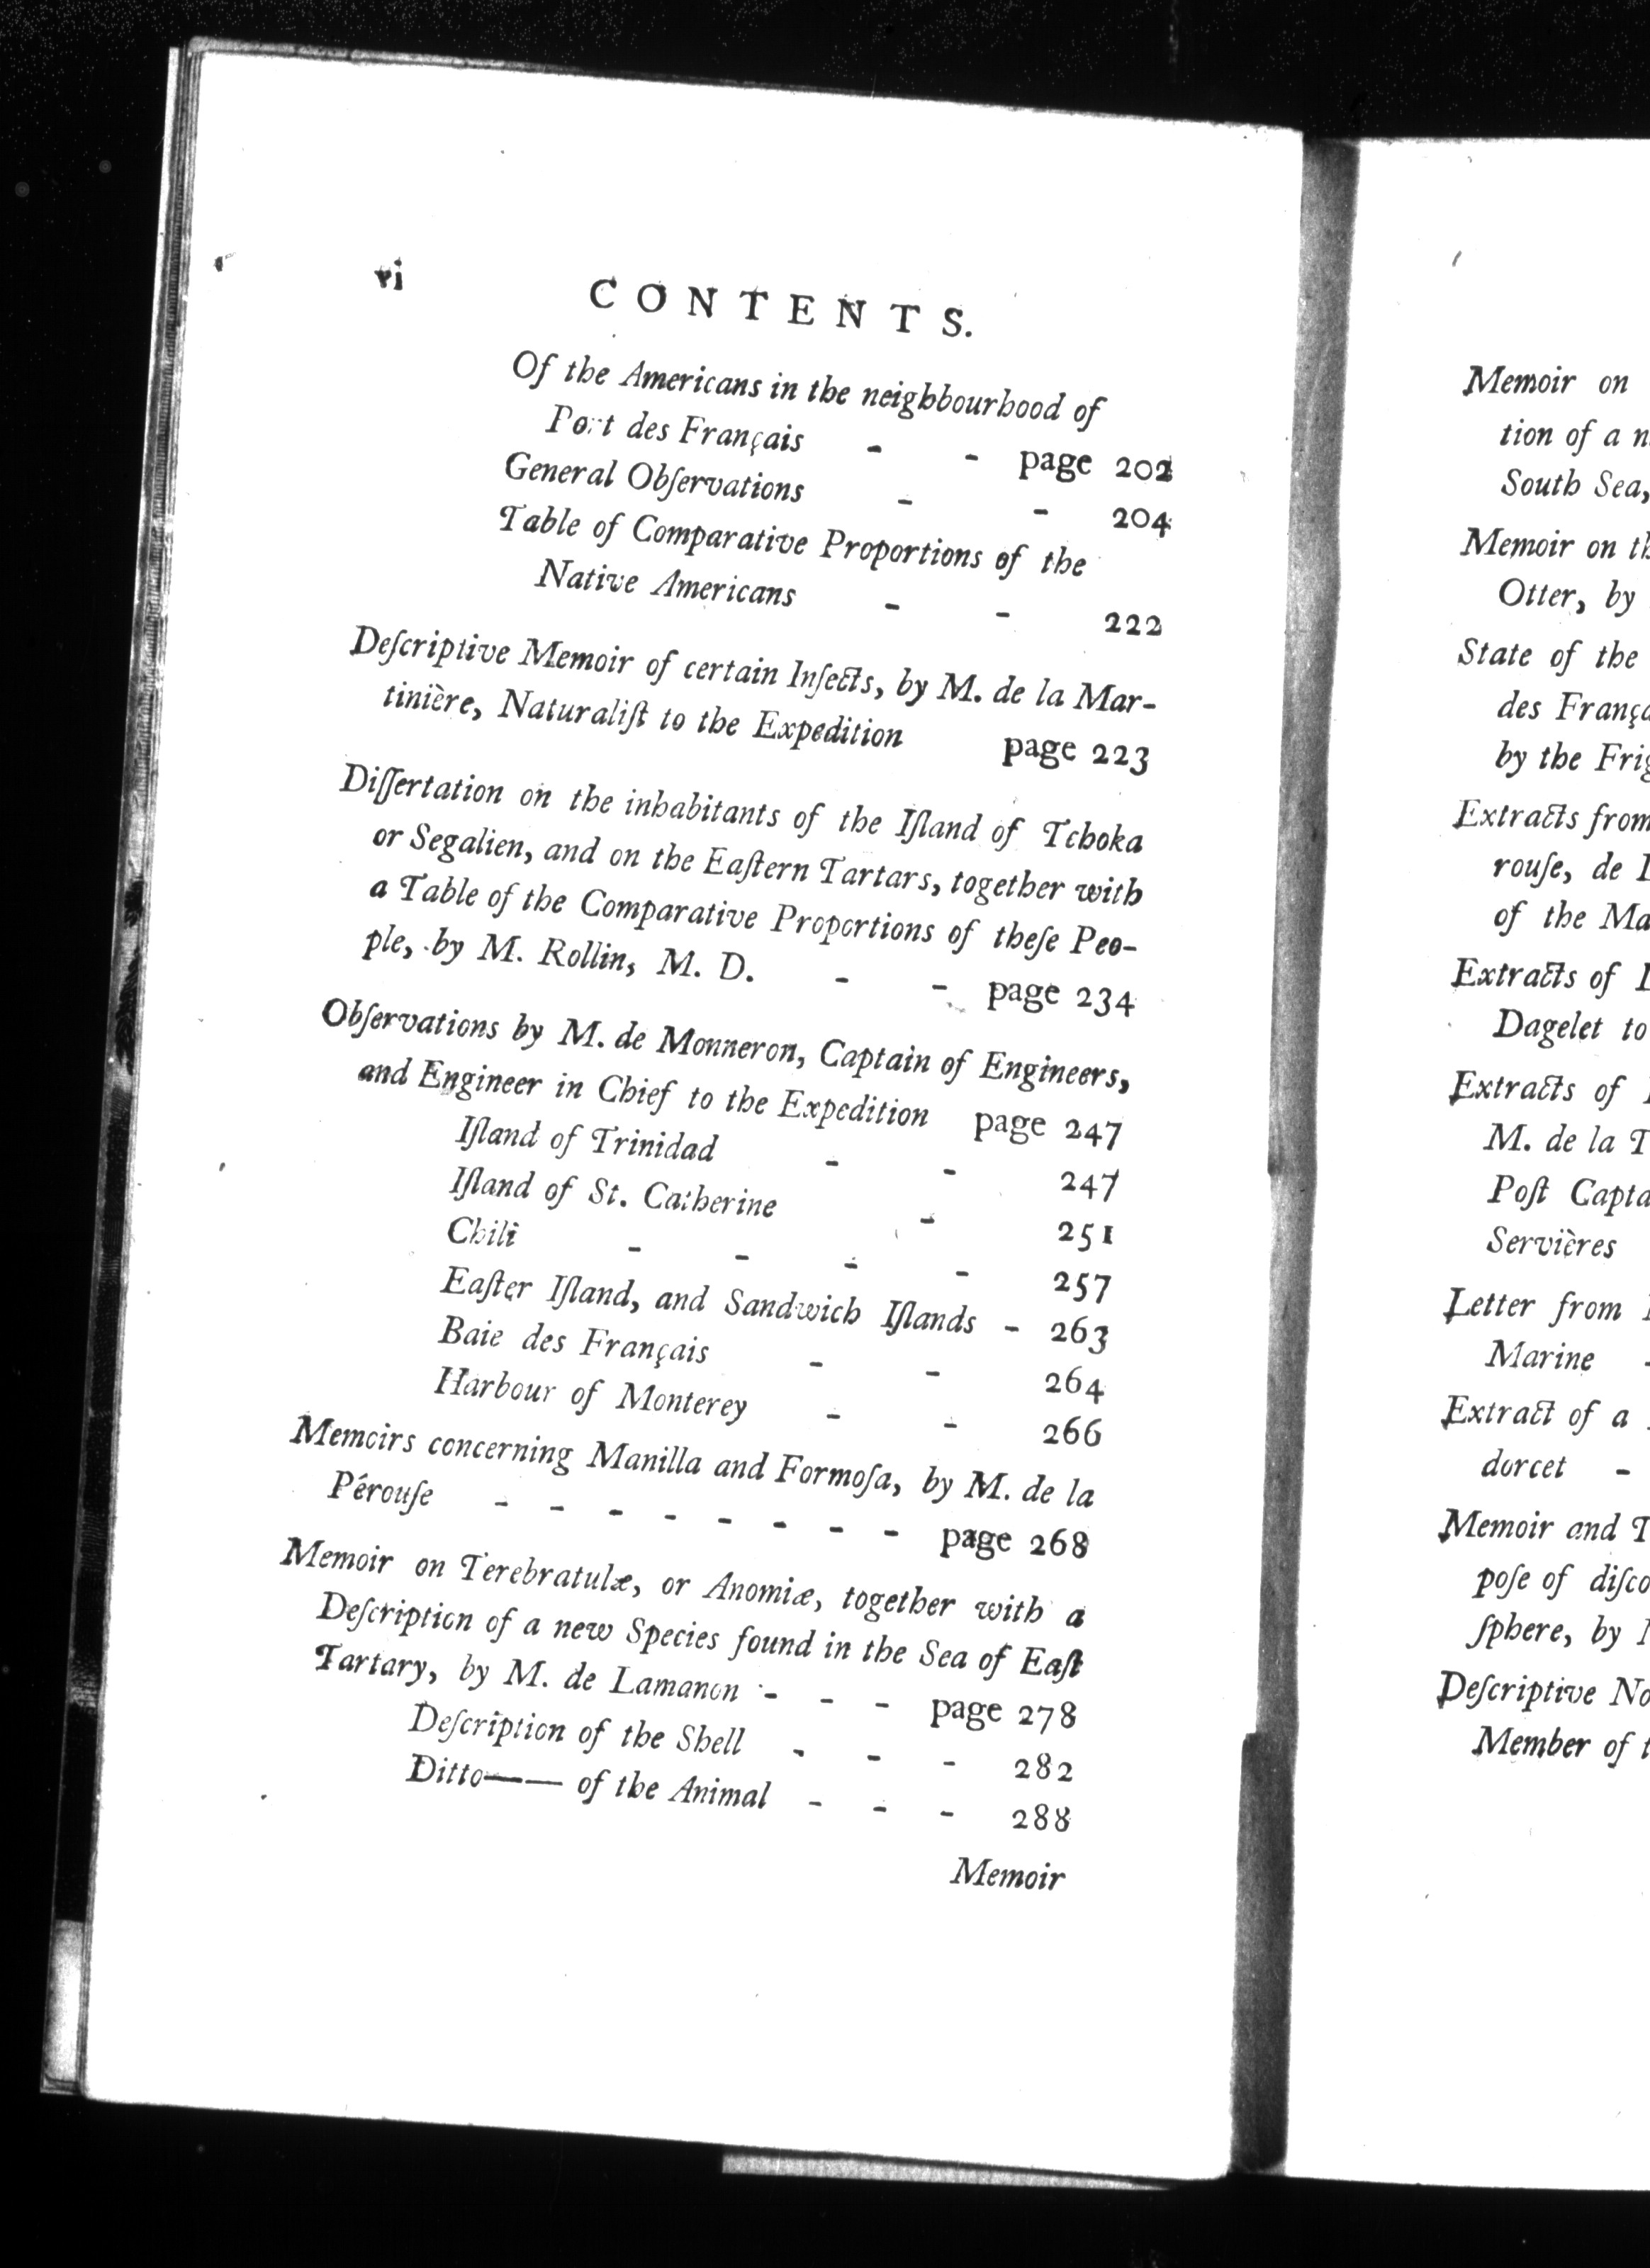 vi
CONTENTS.
Of the Americans in the neighbourhood of
Port des Français - - page 202
General Obſervations - - 204
Table of Comparative Proportions of the
Native Americans - - 222
Deſcriptive Memoir of certain Inſects, by M. de la Mar-
tinière, Naturaliſt to the Expedition page 223
Diſſertation on the inhabitants of the Iſland of Tchoka
or Segalien, and on the Eaſtern Tartars, together with
a Table of the Comparative Proportions of theſe Peo-
ple, by M. Rollin, M. D. - - page 234
Obſervations by M. de Monneron, Captain of Engineers,
and Engineer in Chief to the Expedition page 247
Iſland of Trinidad - - 247
Iſland of St. Catherine - 251
Chili - - - - 257
Eaſter Iſland, and Sandwich Iſlands - 263
Baie des Français - - 264
Harbour of Monterey - - 266
Memoirs concerning Manilla and Formoſa, by M. de la
Pérouſe - - - - - - - - page 268
Memoir on Terebratulæ, or Anomiæ, together with a
Deſcription of a new Species found in the Sea of Eaſt
Tartary, by M. de Lamanon - - - page 278
Deſcription of the Shell - - - 282
Ditto—— of the Animal - - - 288
Memoir
Memoir on
tion of a
South Sea,
Memoir on
Otter, by
State of the
des
by the
Extracts from
rouſe, de
of the
Extracts of
Dagelet to
Extracts of
M. de la
Poſt
Servières
Letter from
Marine -
Extract of a
dorcet -
Memoir and
poſe of
ſphere, by
Deſcriptive
Member of